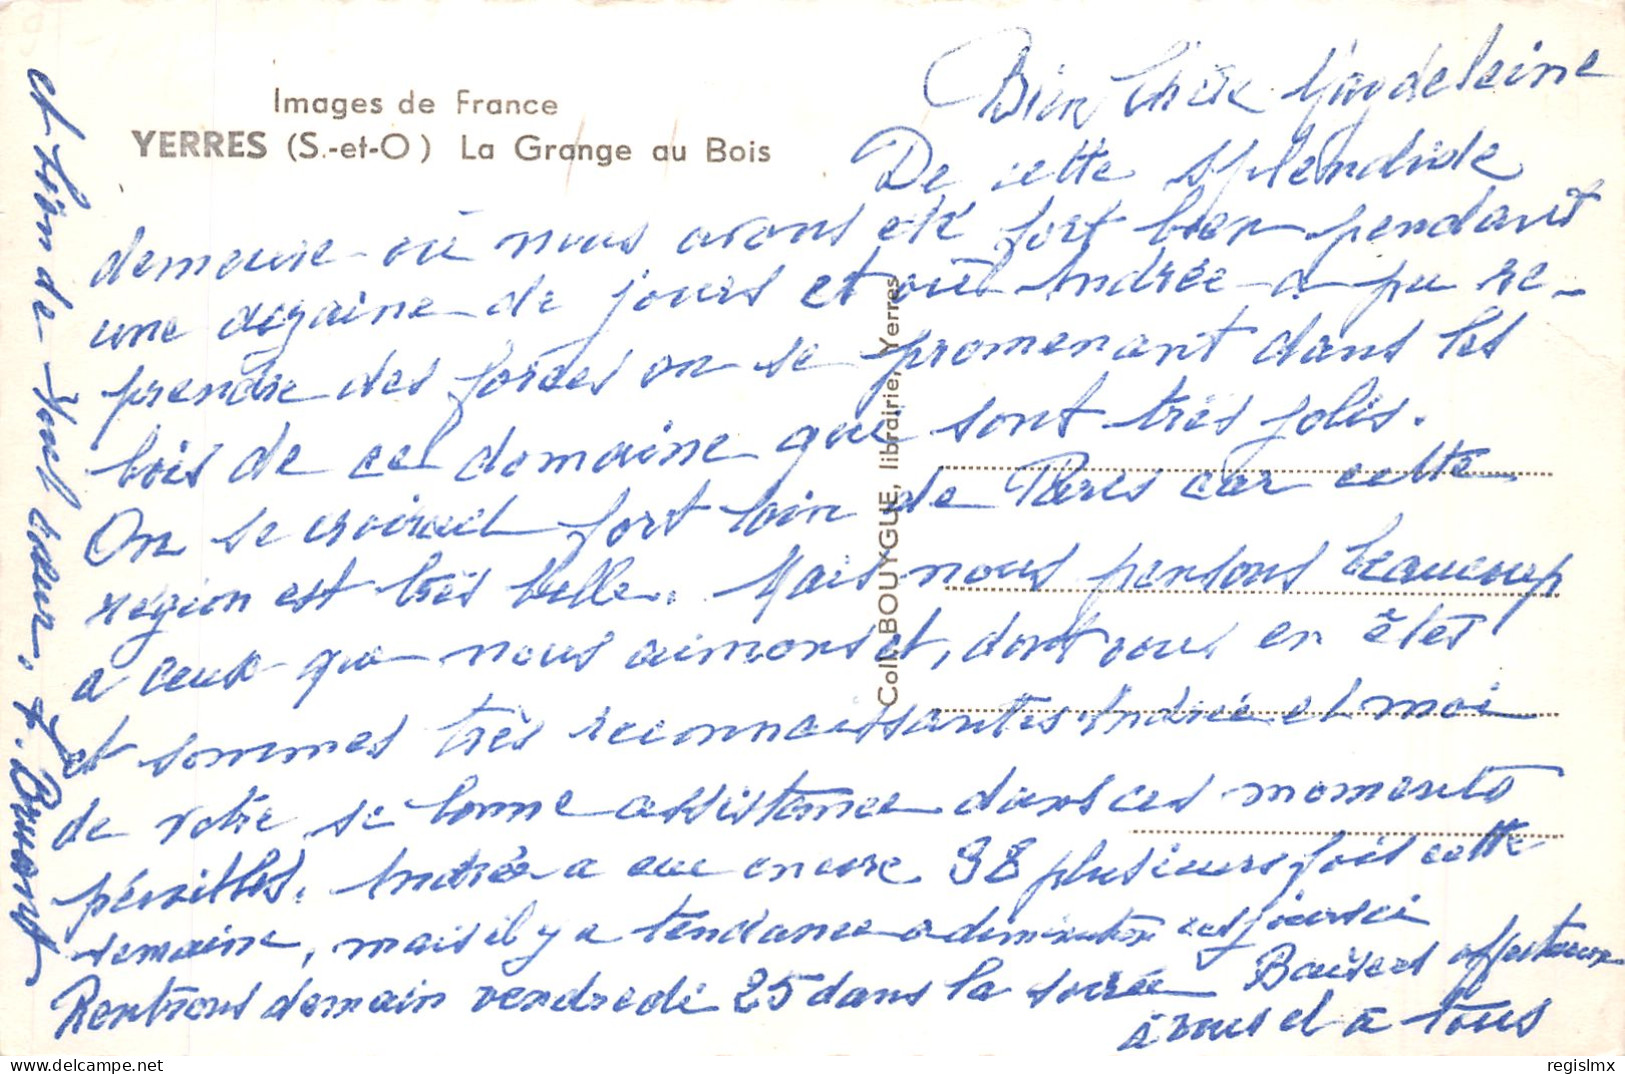 Images de France
YERRES (S.-et-O) La Grange au Bois
Coll. BOUYGUE, librairie, Yerres
Bien chère Magdeleine
De cette splendide
demeure où nous avons été fort bien pendant
une dizaine de jours et où Andrée a pu re-
prendre des forces on se promenant dans les
bois de ce domaine que sont très jolis.
On se croirait fort loin de Paris car cette
région est très belle. Mais nous pensons beaucoup
a ceux que nous aimons et, dont vous en êtes
et sommes très reconnaissantes Andrée et moi
de votre si bonne assistance dans ces moments
pénibles. Andrée a eue encore 38 plusieurs fois cette
semaine, mais il y a tendance a diminution ces jours ci
Rentrons demain vendredi 25 dans la soirée Baisers affectueux
à vous et à tous
et bien de tout cœur.
regislmx